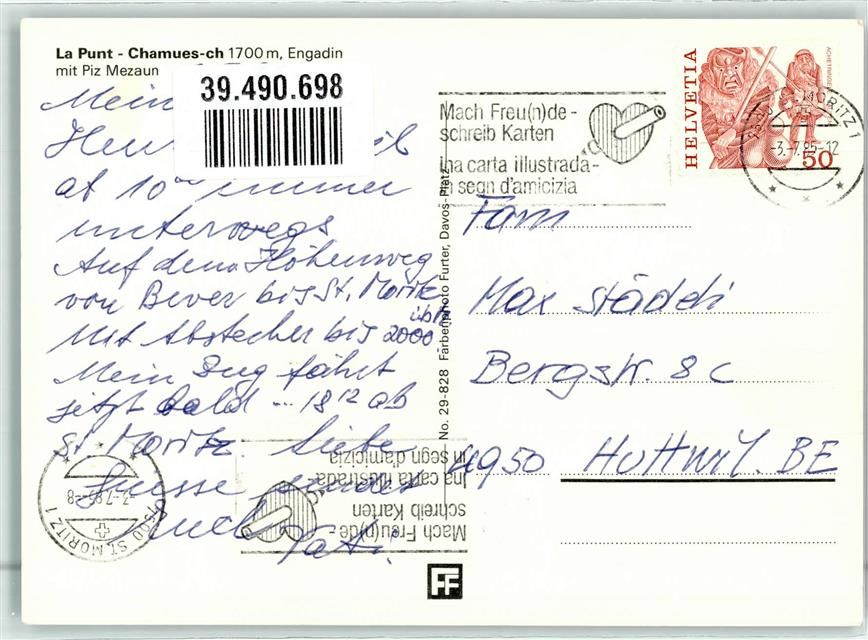 La Punt - Chamues-ch 1700 m, Engadin
mit Piz Mezaun
39.490.698
Mein
ab 10 immer
unterwegs
Auf dem Höhenweg
von Bever bis St. Moritz
Mit Abstecher bis über 2000
Mein Zug fährt
jetzt bald ... 18 12 ab
St. Moritz. Liebe
Grüsse sendet
euch Tati.
No. 29-828 Farbenphoto Furter, Davos-Platz
Mach Freu(n)de-
schreib Karten
Ina carta illustrada-
in segn d'amicizia
HELVETIA
50
ST. MORITZ 1
-3.-7.85-12
Fam
Max Städeli
Bergstr. 8c
4950 Huttwil. BE
Mach Freu(n)de-
schreib Karten
Ina carta illustrada
in segn d'amicizia
-3.-7.85-8
7500 ST. MORITZ 1
FF